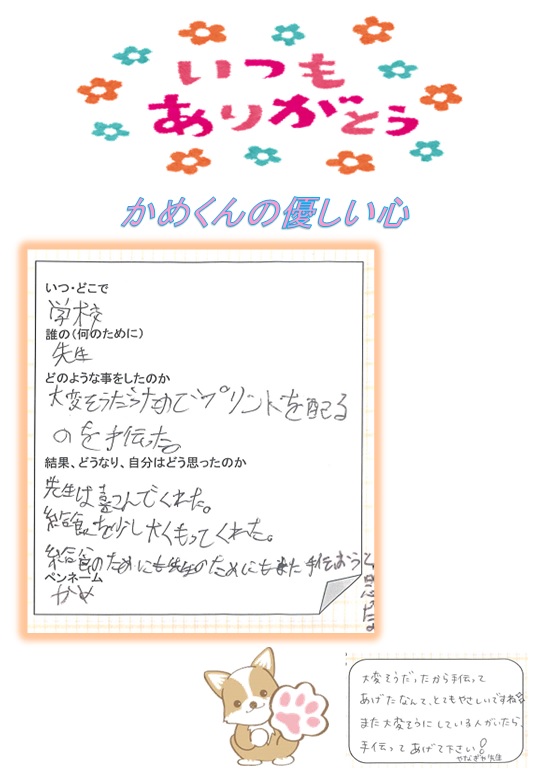 いつも
ありがとう
かめくんの優しい心
いつ・どこで
学校
誰の(何のために)
先生
どのような事をしたのか
大変そうだったのでプリントを配る
のを手伝った。
結果、どうなり、自分はどう思ったのか
先生は喜んでくれた。
給食を少し大くもってくれた。
給食のためにも先生のためにもまた手伝おうと
思いました
ペンネーム
かめ
大変そうだったから手伝って
あげたなんて、とてもやさしいですね
また大変そうにしている人がいたら、
手伝ってあげて下さい!
やなぎや先生